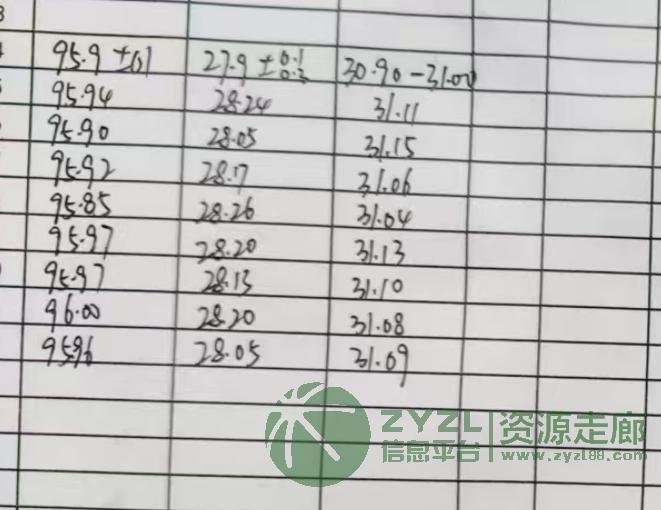 3
95.9 ±0.1 27.9 ±0.1 0.3 30.90-31.00
95.94 28.24 31.11
95.90 28.05 31.15
95.92 28.17 31.06
95.85 28.26 31.04
95.97 28.20 31.13
95.97 28.13 31.10
96.00 28.20 31.08
95.96 28.05 31.09
ZYZL 资源走廊
信息平台 www.zyzl88.com